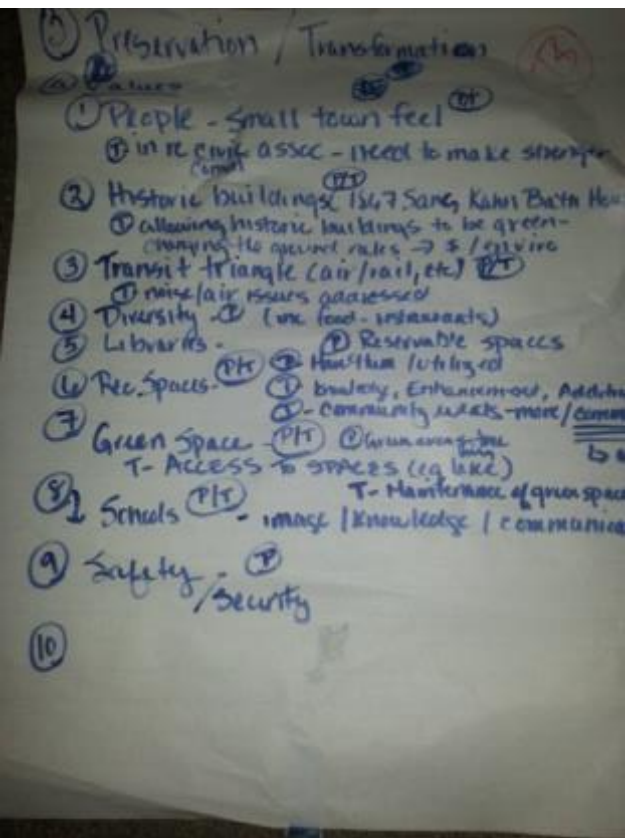 Preservation / Transformation
Values
① People - small town feel P/T
Ⓣ in re civic assoc - need to make stronger
② Historic buildings P/T 1847
Ⓣ allowing historic buildings to be green-
changing the ground rules → $ / enviro
③ Transit triangle (air/rail, etc) P/T
Ⓣ noise/air issues addressed
④ Diversity - Ⓟ (inc food - restaurants)
⑤ Libraries - Ⓟ Reservable spaces
⑥ Rec. Spaces - P/T Ⓟ /utilized
Ⓣ Enhancement,
Ⓣ - Community - more/
⑦ Green Space - P/T Ⓟ Green
T- ACCESS TO SPACES (eg lake)
T- Maintenance of green
⑧ Schools P/T - image / knowledge /
⑨ Safety - Ⓟ
/Security
⑩